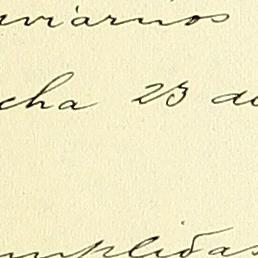 uviarnos
cha 23 de
mplidas